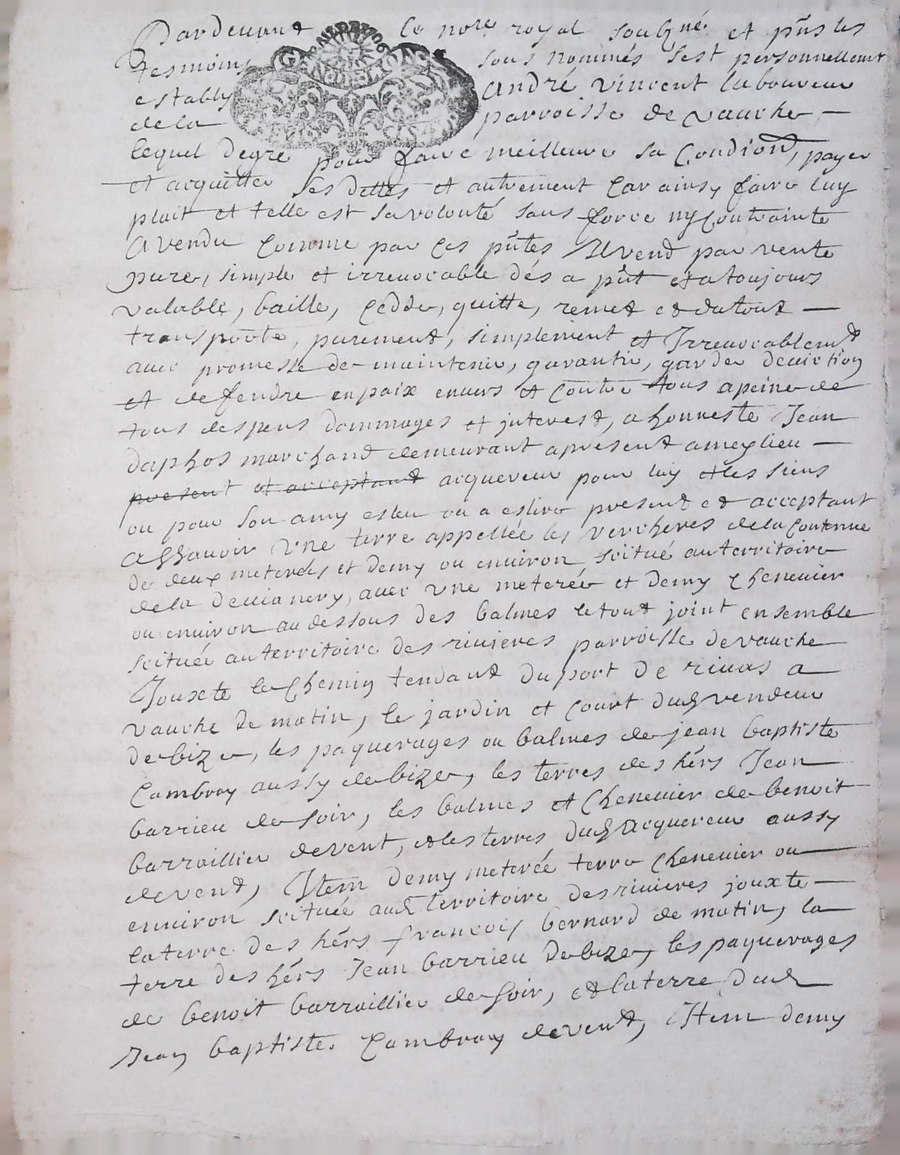 Pardevant le nore royal soubgné et pñts les
tesmoins sous nommés sest personnellement
estably André vincent laboureur
de la parroisse de vauche
lequel degre pour faire meilleure sa Condion, payer
et acquitter ses dettes et autrement Car ainsy faire luy
plait et telle est sa volonté sans force ny Contrainte
A vendu Comme par Ces pñtes Il vend par vente
pure, simple et irrevocable des a pñt et a toujours
valable, baille, Cedde, quitte, remet et du tout
transporte, purement, simplement et Irrevocablemt
avec promesse de maintenir, garantir, garder deviction
et deffendre en paix envers et Contre tous a peine de
tous despens dommages et interest, a honneste Jean
daphos marchand demeurant apresent a meylieu
present et acceptant acquereur pour luy et les siens
ou pour son amy esleu ou a eslire present et acceptant
Assavoir Une terre appellée les verchères de la Contenue
de deux meterées et demy ou environ scitué au territoire
de la, avec Une meterée et demy Chenevier
ou environ au dessous des balmes le tout joint ensemble
scituée au territoire des rivieres parroisse de vauche
Jouxte le Chemin tendant du port de rivas a
vauche de matin, le jardin et Court dud vendeur
de bize, les paquerages ou balmes de jean baptiste
Cambray aussy de bize, les terres des hérs Jean
barrieu de soir, les balmes et Chenevier de benoit
barraillier de vent, et les terres dud acquereur aussy
de vend, Item demy meterée terre Chenevier ou
environ scituée aud territoire des rivieres jouxte
la terre des hérs françois bernard de matin, la
terre des hérs Jean barrieu de bize, les paquerages
de benoit barraillier de soir, et la terre dud
Jean baptiste Cambray de vend, Item demy